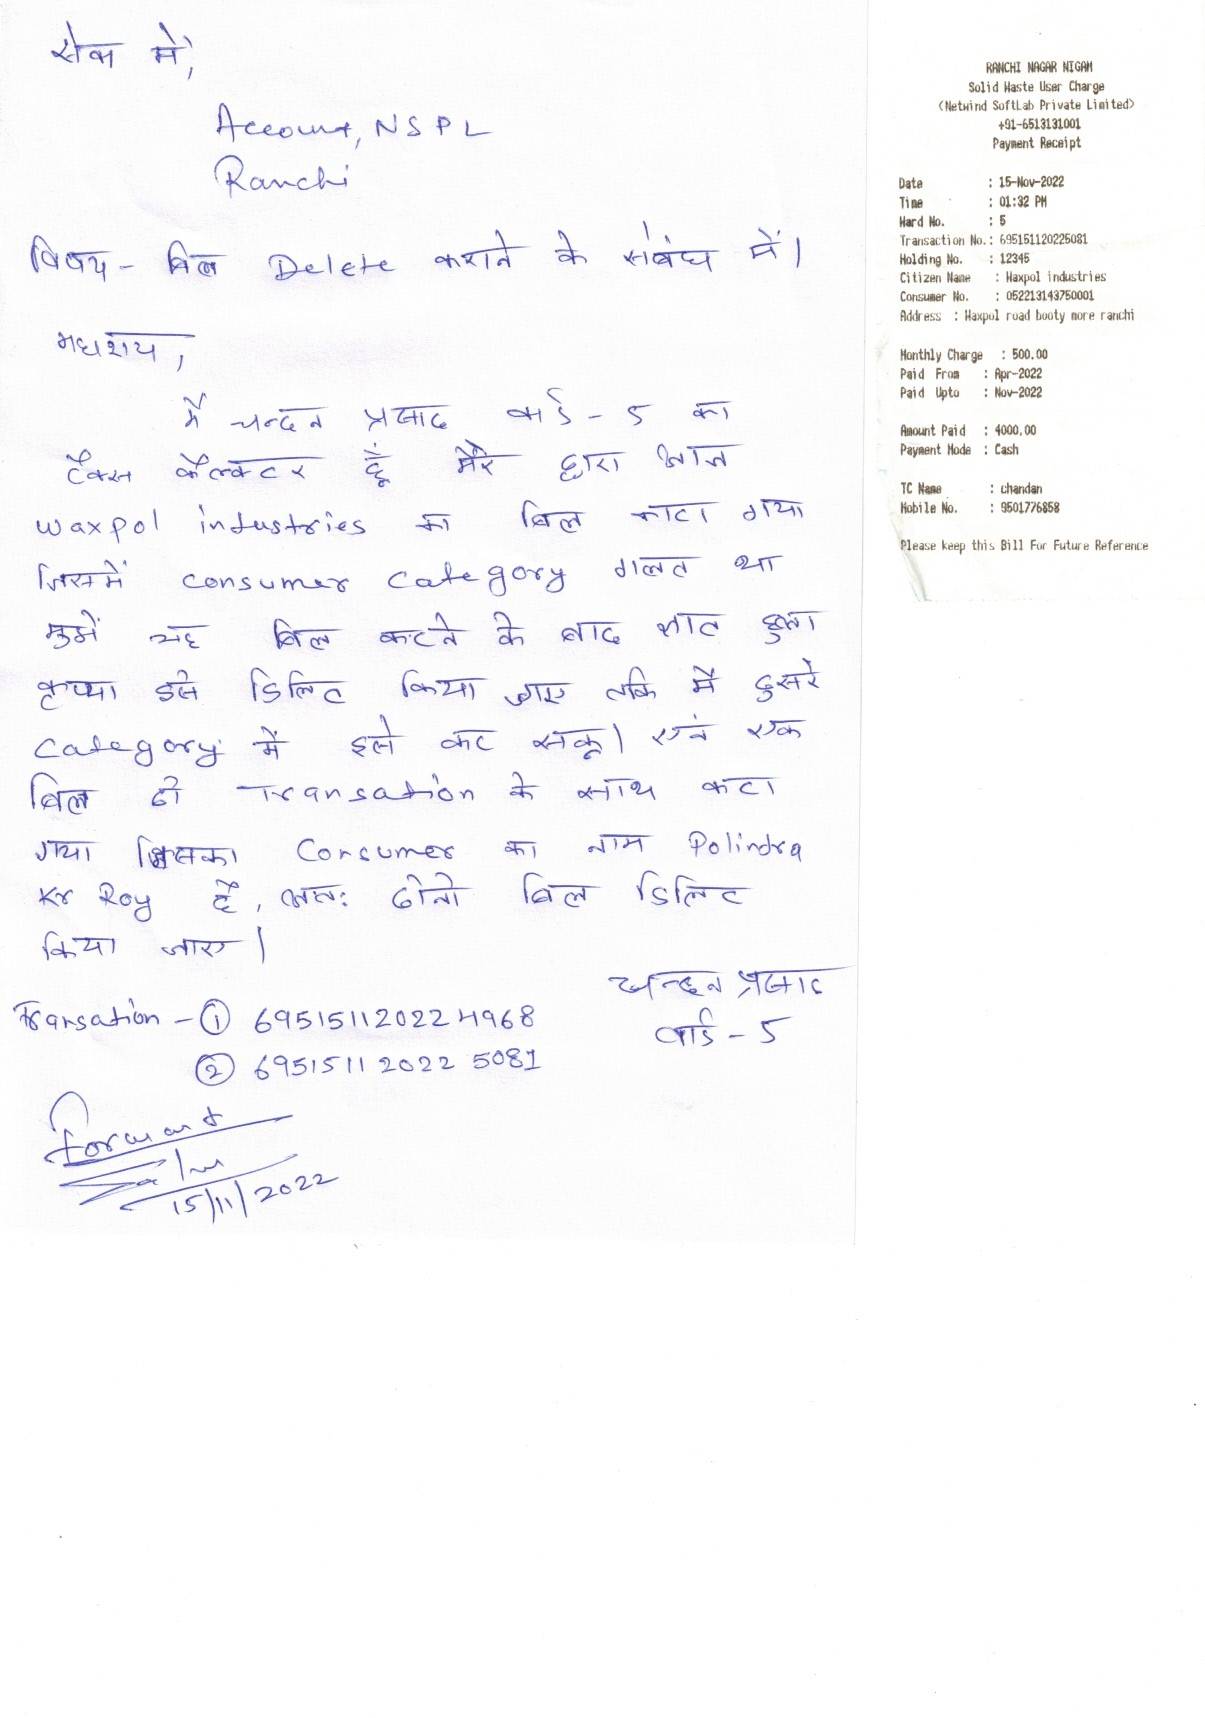 सेवा में,
Account, NSPL
Ranchi
विषय - बिल Delete कराने के संबंध में।
महाशय,
मैं चन्दन प्रसाद वार्ड - 5 का
टैक्स कैलेक्टर हूँ मेरे द्वारा आज
waxpol industries का बिल काटा गया
जिसमें consumer category गलत था
मुझें यह बिल कटने के बाद ज्ञात हुआ
कृप्या इसे डिलिट किया जाए तकि मैं दुसरे
category में इसे काट सकू। एवं एक
बिल दो Transation के साथ कटा
गया जिसका Consumer का नाम Polindra
Kr Roy है, अतः दोनो बिल डिलिट
किया जाए।
चन्दन प्रसाद
वार्ड - 5
Transation - ① 695151120224968
② 695151120225081
Forward
15/11/2022
RANCHI NAGAR NIGAM
Solid Waste User Charge
(Netwind SoftLab Private Limited)
+91-6513131001
Payment Receipt
Date : 15-Nov-2022
Time : 01:32 PM
Ward No. : 5
Transaction No. : 695151120225081
Holding No. : 12345
Citizen Name : Waxpol industries
Consumer No. : 052213143750001
Address : Waxpol road booty more ranchi
Monthly Charge : 500.00
Paid From : Apr-2022
Paid Upto : Nov-2022
Amount Paid : 4000.00
Payment Mode : Cash
TC Name : chandan
Mobile No. : 9501776858
Please keep this Bill For Future Reference